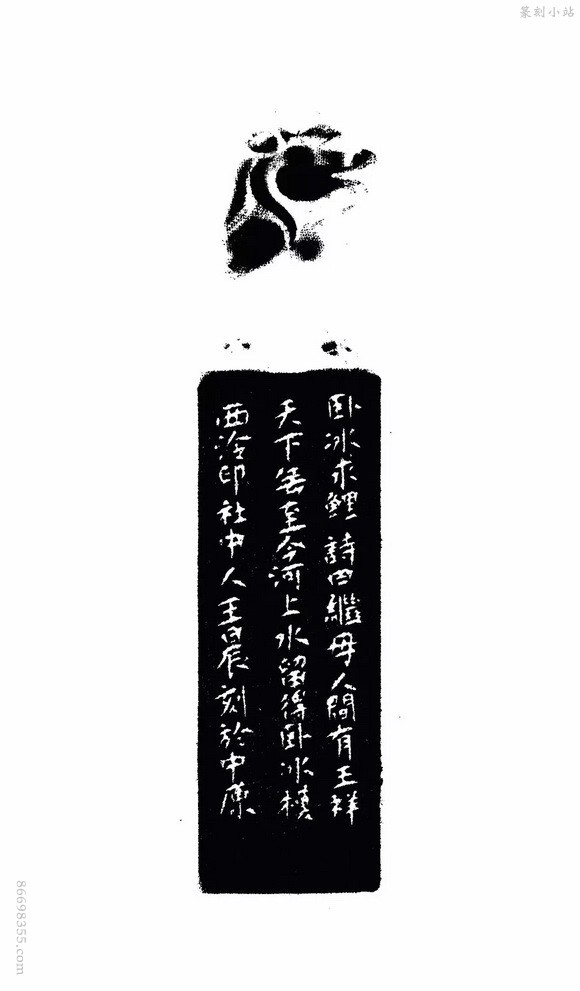 篆刻小站
卧冰求鯉 詩曰繼母人間有王祥
天下無至今河上水留得卧冰模
西泠印社中人王晨刻於中原
86698355.com